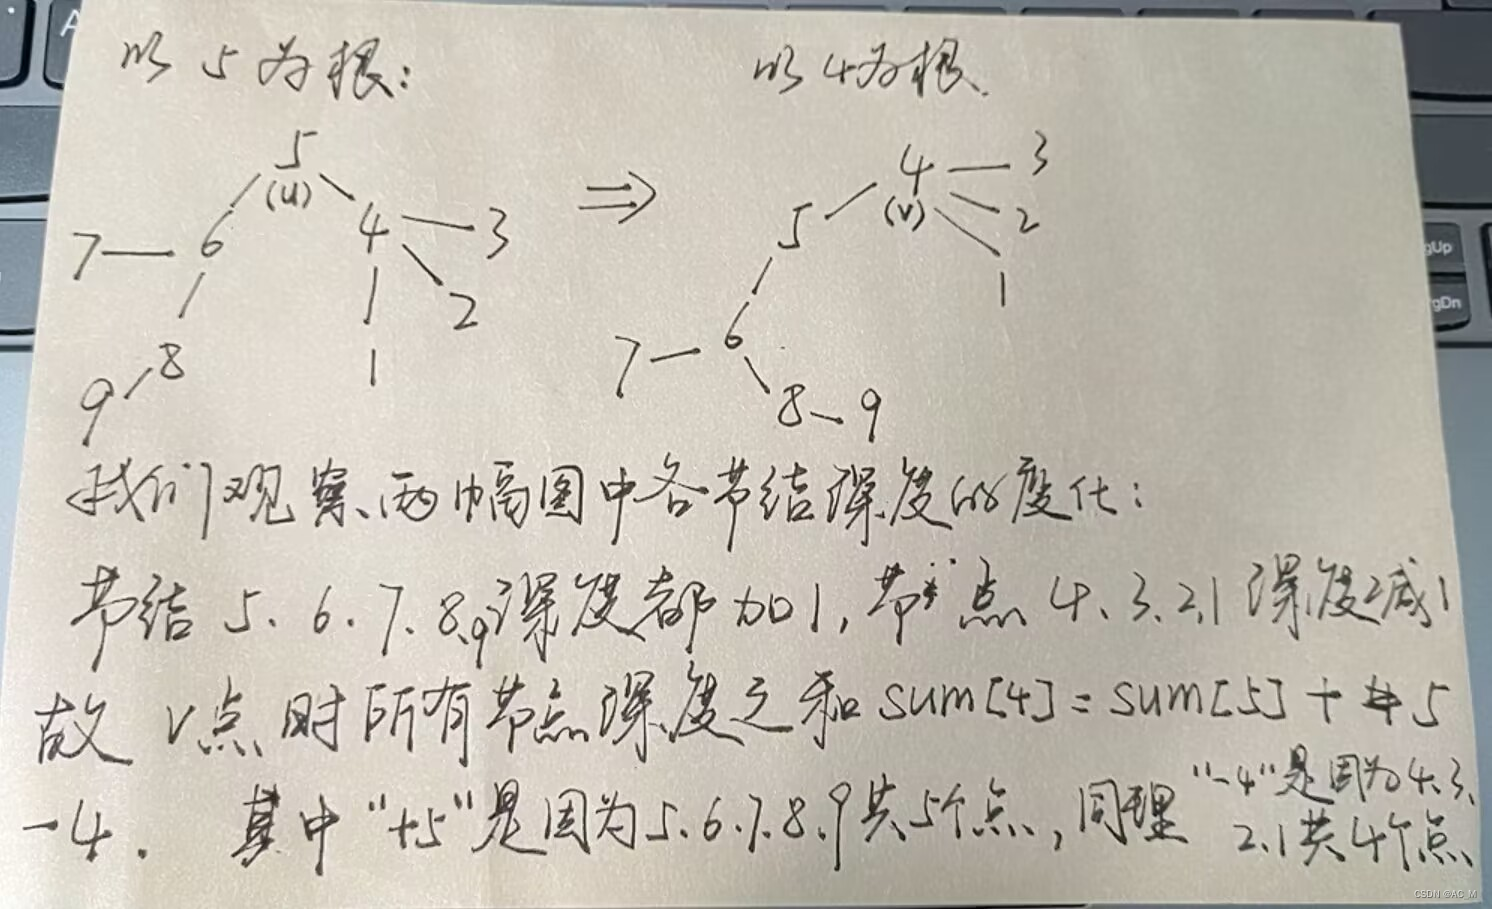 以5为根: 以4为根.
5 4 3
(u) (v)
7 6 4 3 ⇒ 5 2
8 2 1
9 1 7 6
8 9
我们观察两幅图中各节结深度的变化:
节结 5、6、7、8、9深度都加1,节点 4、3、2、1 深度减1
故 v点时所有节点深度之和 sum[4]=sum[5]+5
-4. 其中"+5"是因为5、6、7、8、9共5个点,同理"-4"是因为4、3、
2、1共4个点
CSDN @AC_M